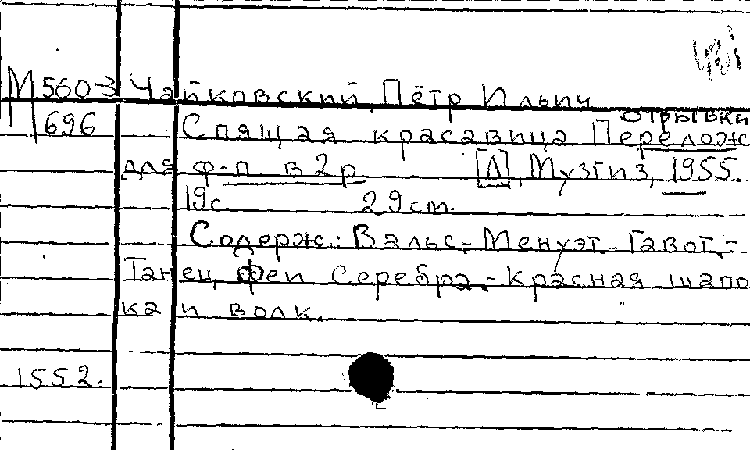 М560-3 Чайковский, Пётр Ильич
отрывки
696 Спящая красавица Перелож
для ф-п в 2 р [Л], Музгиз, 1955.
19с 29 cm.
Содерж.: Вальс.- Менуэт. Гавот.-
Танец феи Серебра.- Красная шапо
ка и волк.
1552.